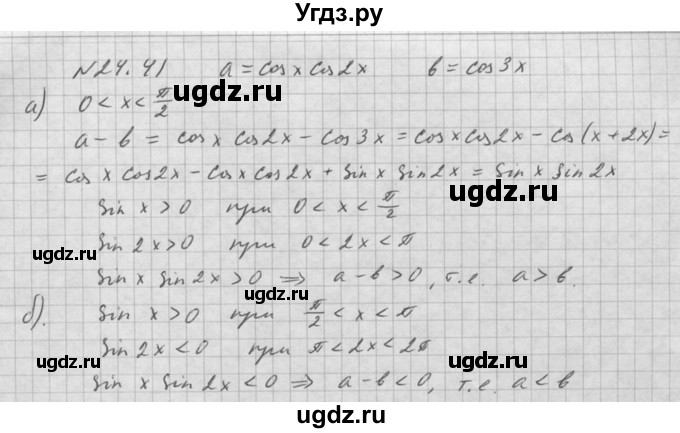 Угдз.ру
№24.41 a = cos x cos 2x b = cos 3x
а) 0 < x < π/2
a - b = cos x cos 2x - cos 3x = cos x cos 2x - cos (x + 2x) =
= cos x cos 2x - cos x cos 2x + sin x sin 2x = sin x sin 2x
sin x > 0 при 0 < x < π/2
sin 2x > 0 при 0 < 2x < π
sin x sin 2x > 0 ⇒ a - b > 0, т.е. a > b.
б). sin x > 0 при π/2 < x < π
sin 2x < 0 при π < 2x < 2π
sin x sin 2x < 0 ⇒ a - b < 0, т.е. a < b
ugdz.ru
ugdz.ru
ugdz.ru
ugdz.ru
ugdz.ru
ugdz.ru
ugdz.ru
ugdz.ru
ugdz.ru